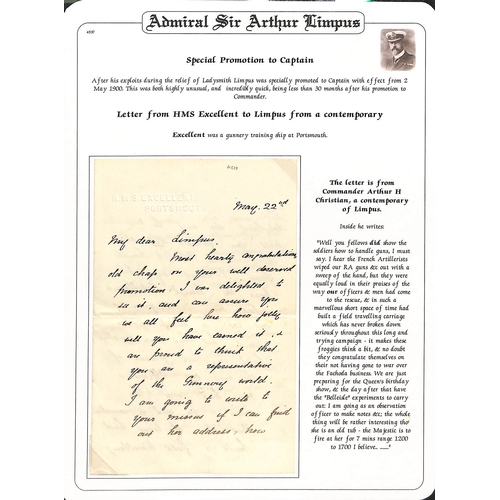 Admiral Sir Arthur Limpus
Special Promotion to Captain
After his exploits during the relief of Ladysmith Limpus was specially promoted to Captain with effect from 2
May 1900. This was both highly unusual, and incredibly quick, being less than 30 months after his promotion to
Commander.
Letter from HMS Excellent to Limpus from a contemporary
Excellent was a gunnery training ship at Portsmouth.
H.M.S EXCELLENT
PORTSMOUTH
May. 22nd
My dear Limpus.
Most hearty congratulations
old chap on your well deserved
promotion. I was delighted to
see it, and can assure you
we all feel here how jolly
well you have earned it, &
are proud to think that
you are a representative
of the Gunnery world.
I am going to write to
your missus if I can find
out her address, how
The letter is from
Commander Arthur H
Christian, a contemporary
of Limpus.
Inside he writes:
"Well you fellows did show the
soldiers how to handle guns, I must
say. I hear the French Artillerists
wiped our RA guns &c out with a
sweep of the hand, but they were
equally loud in their praises of the
way our officers & men had come
to the rescue, & in such a
marvellous short space of time had
built a field travelling carriage
which has never broken down
seriously throughout this long and
trying campaign - it makes these
froggies think a bit, & no doubt
they congratulate themselves on
their not having gone to war over
the Fachoda business. We are just
preparing for the Queen's birthday
show, & the day after that have
the "Belleisle" experiments to carry
out: I am going as an observation
officer to make notes &c; the whole
thing will be rather interesting tho'
she is an old tub - the Majestic is to
fire at her for 7 mins range 1200
to 1700 I believe. ......"